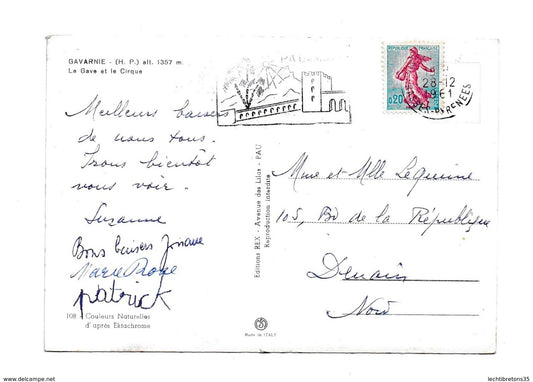 GAVARNIE - (H. P.) alt. 1357 m.
Le Gave et le Cirque
Meilleurs baisers
de nous tous.
Irons bientôt
vous voir.
Suzanne
Bons baisers Josiane
Marie Rose
patrick
108 - Couleurs Naturelles
d'après Ektachrome
Editions REX - Avenue des Lilas - PAU
Reproduction interdite
Made in ITALY
REPUBLIQUE FRANÇAISE
0,20
28-12
1961
PYRENEES
Mme et Mlle Lequinne
105, Bd de la République
Denain
Nord
lechtibretons35